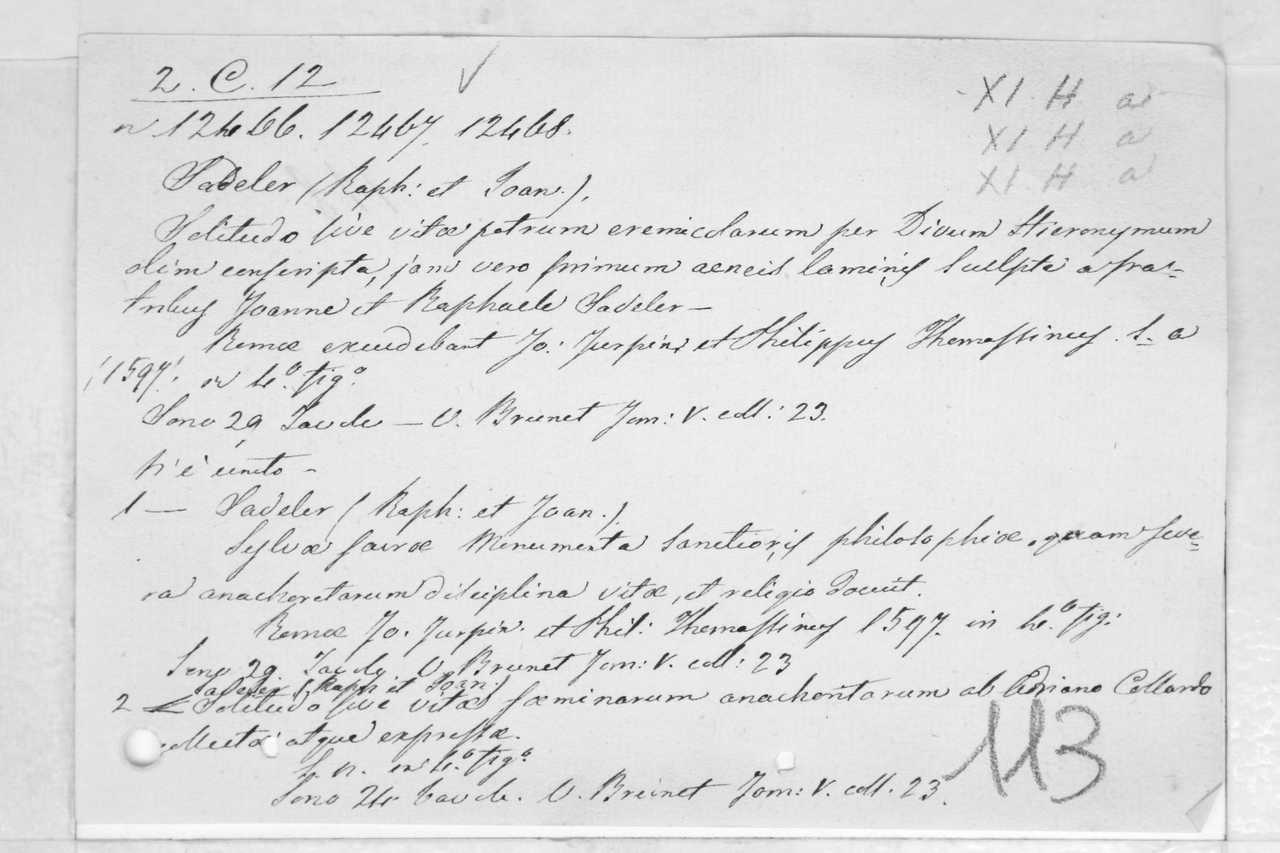 2. C. 12 XI H a
n 12466. 12467. 12468. XI H a
XI H a
Sadeler (Raph: et Joan.),
Solitudo sive vitæ patrum eremicolarum per Divum Hieronymum
olim conscripta, jam vero primum aeneis laminis sculpta a fra=
tribus Joanne et Raphaele Sadeler —
Romæ excudebant Jo: Turpin; et Philippus Thomassinus. s. a
(1597) in 4.º fig.º
Sono 29 Tavole — V. Brunet Tom: V. coll.: 23.
Vi è unito -
1 — Sadeler (Raph: et Joan.)
Sylvæ sacræ Monumenta sanctioris philosophiæ, quam seve=
ra anachoretarum disciplina vitæ, et religio docuit.
Romæ Jo. Turpin. et Phil: Thomassinus 1597. in 4.º fig:
Sono 29. Tavole V. Brunet Tom: V. coll: 23
Sadeler (Raph et Joan.)
2 — Solitudo sive vitæ fæminarum anachoritarum ab Adriano Collardo
collectæ atque expressæ.
S. n. in 4.º fig.º
Sono 24 tavole. V. Brunet Tom: V. coll. 23.
113